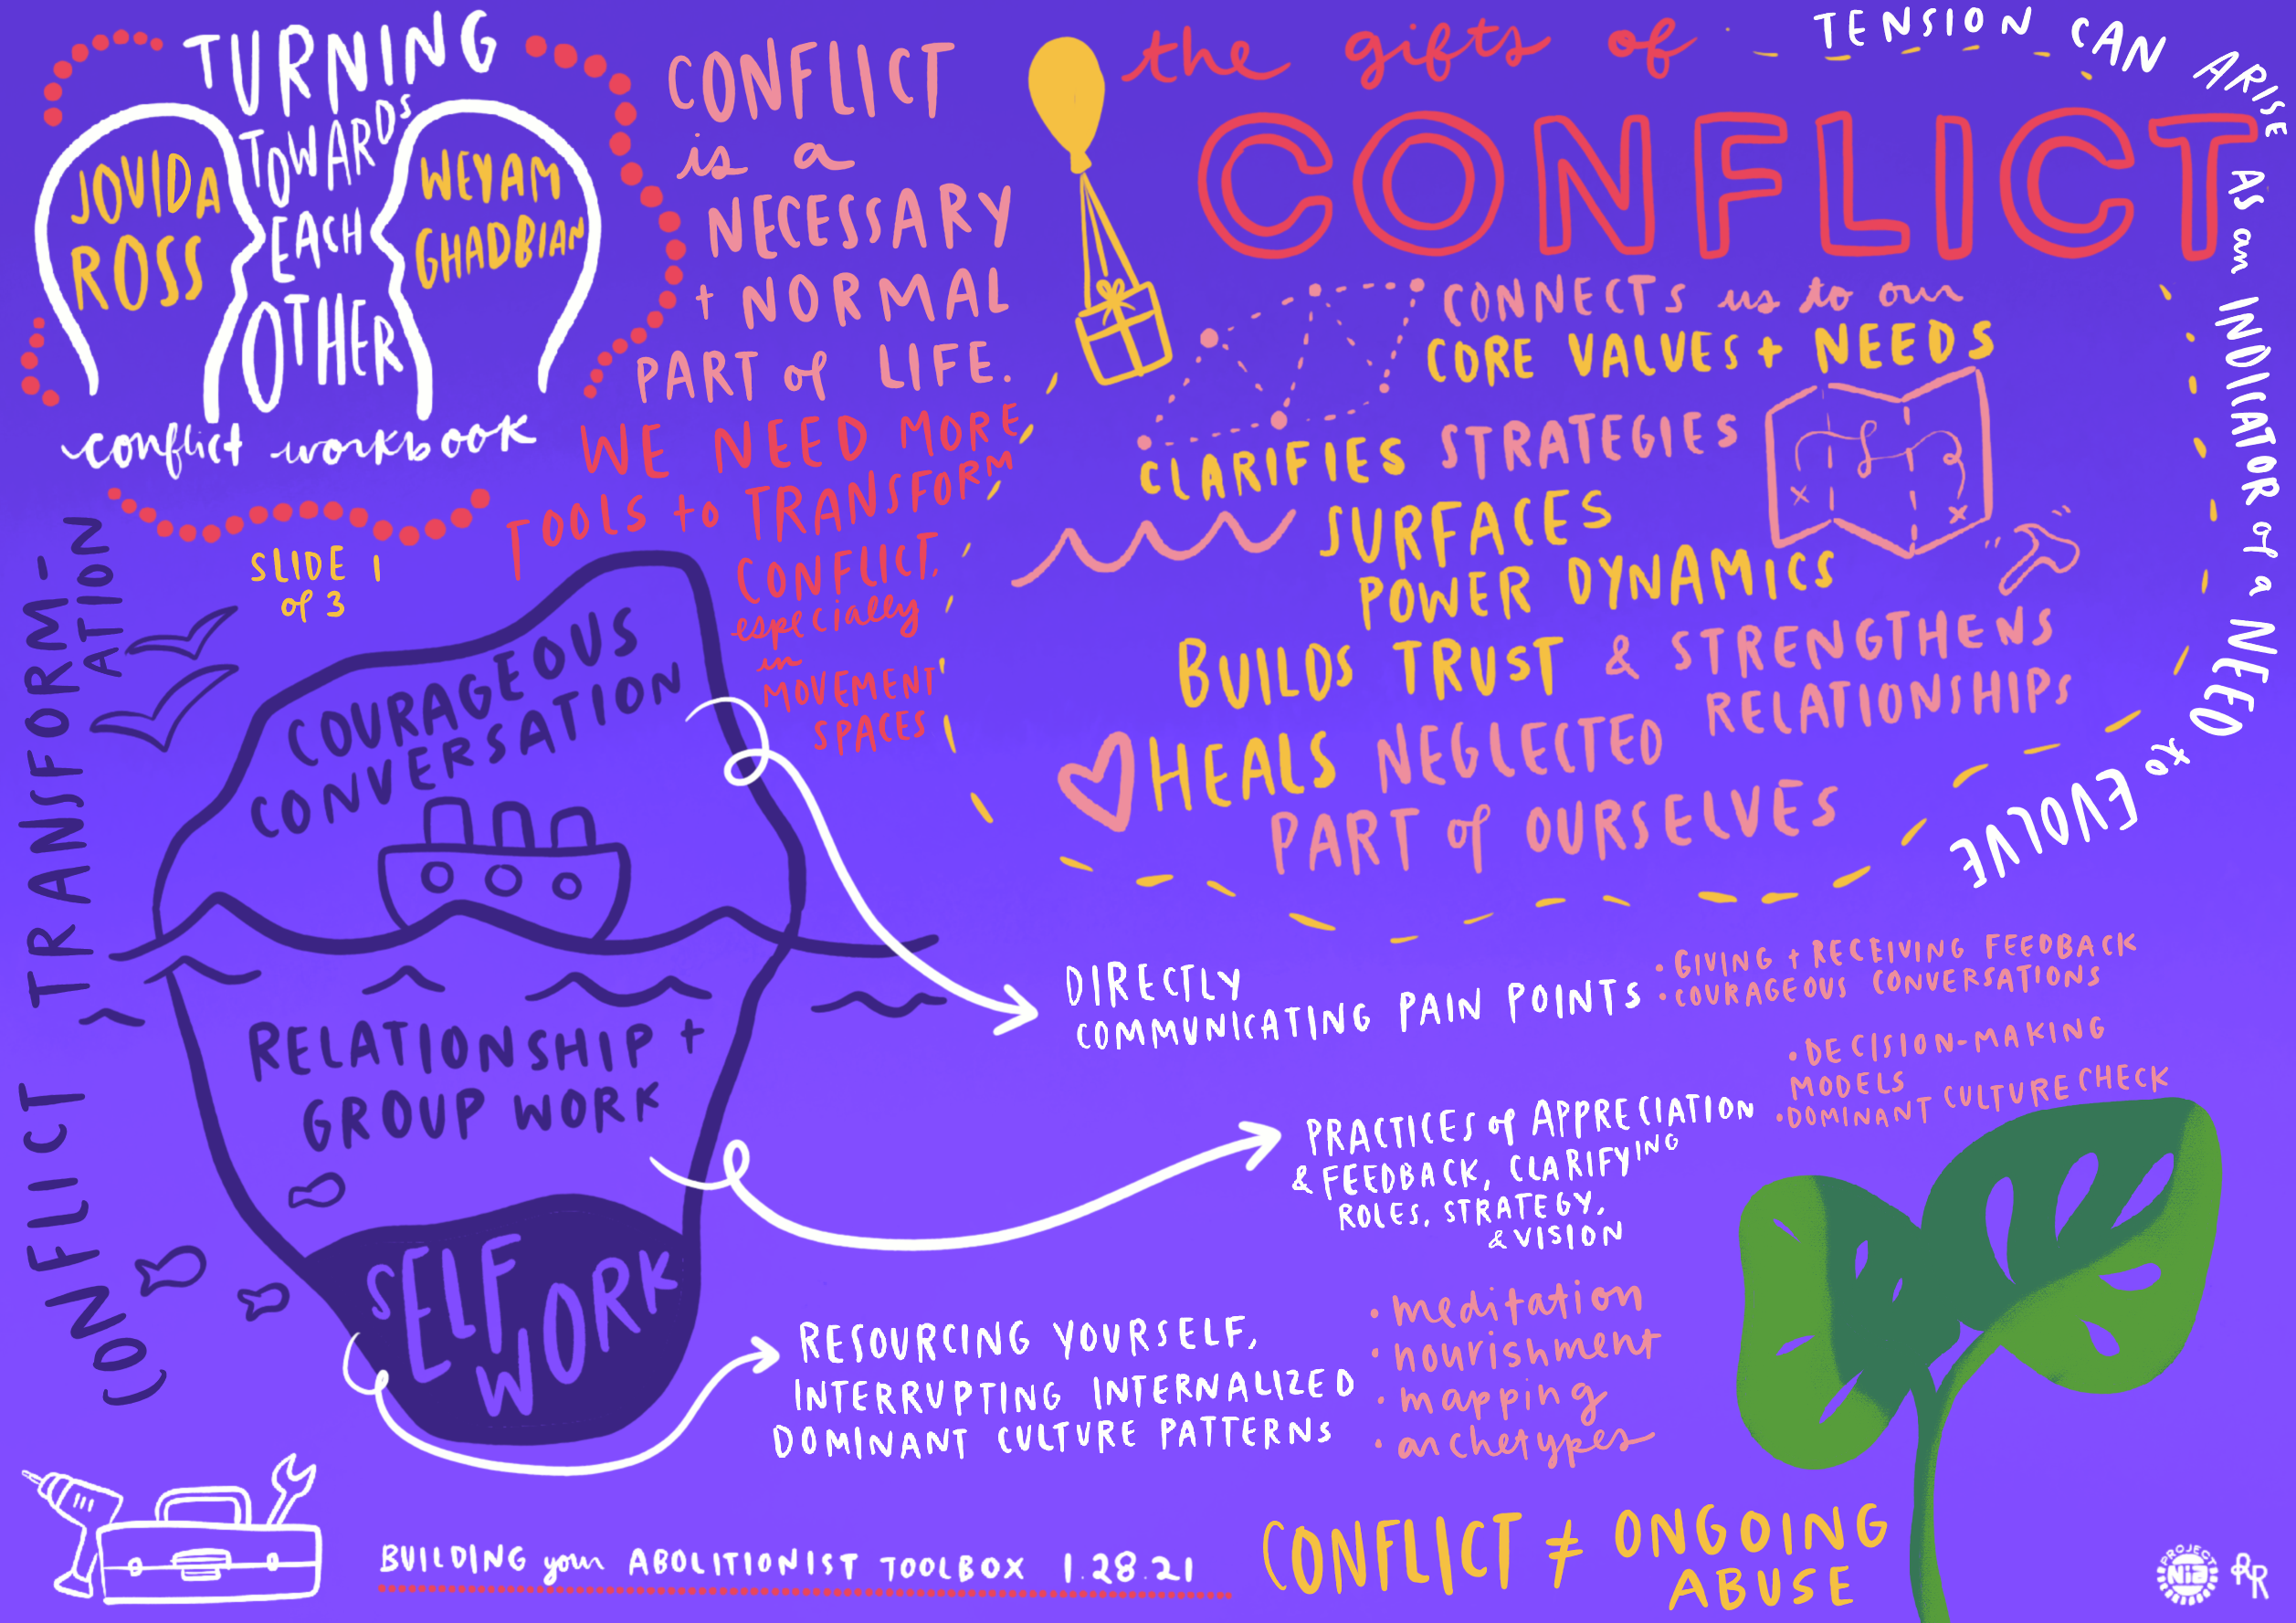 TURNING
TOWARDS
EACH
OTHER
JOVIDA
ROSS
WEYAM
GHADBIAN
conflict workbook
SLIDE 1
of 3
CONFLICT
is a
NECESSARY
+ NORMAL
PART of LIFE.
WE NEED MORE
TOOLS to TRANSFORM
CONFLICT,
especially
in
MOVEMENT
SPACES
the gifts of
CONFLICT
TENSION CAN ARISE AS an INDICATOR of a NEED to EVOLVE
CONNECTS us to our
CORE VALUES + NEEDS
CLARIFIES STRATEGIES
SURFACES
POWER DYNAMICS
BUILDS TRUST & STRENGTHENS
RELATIONSHIPS
HEALS NEGLECTED
PART of OURSELVES
CONFLICT TRANSFORM-
ATION
COURAGEOUS
CONVERSATION
RELATIONSHIP +
GROUP WORK
SELF
WORK
DIRECTLY
COMMUNICATING PAIN POINTS
• GIVING + RECEIVING FEEDBACK
• COURAGEOUS CONVERSATIONS
PRACTICES of APPRECIATION
& FEEDBACK, CLARIFYING
ROLES, STRATEGY,
& VISION
• DECISION-MAKING
MODELS
• DOMINANT CULTURE CHECK
RESOURCING YOURSELF,
INTERRUPTING INTERNALIZED
DOMINANT CULTURE PATTERNS
• meditation
• nourishment
• mapping
• archetypes
BUILDING your ABOLITIONIST TOOLBOX 1.28.21
CONFLICT ≠ ONGOING
ABUSE
PROJECT
NIA